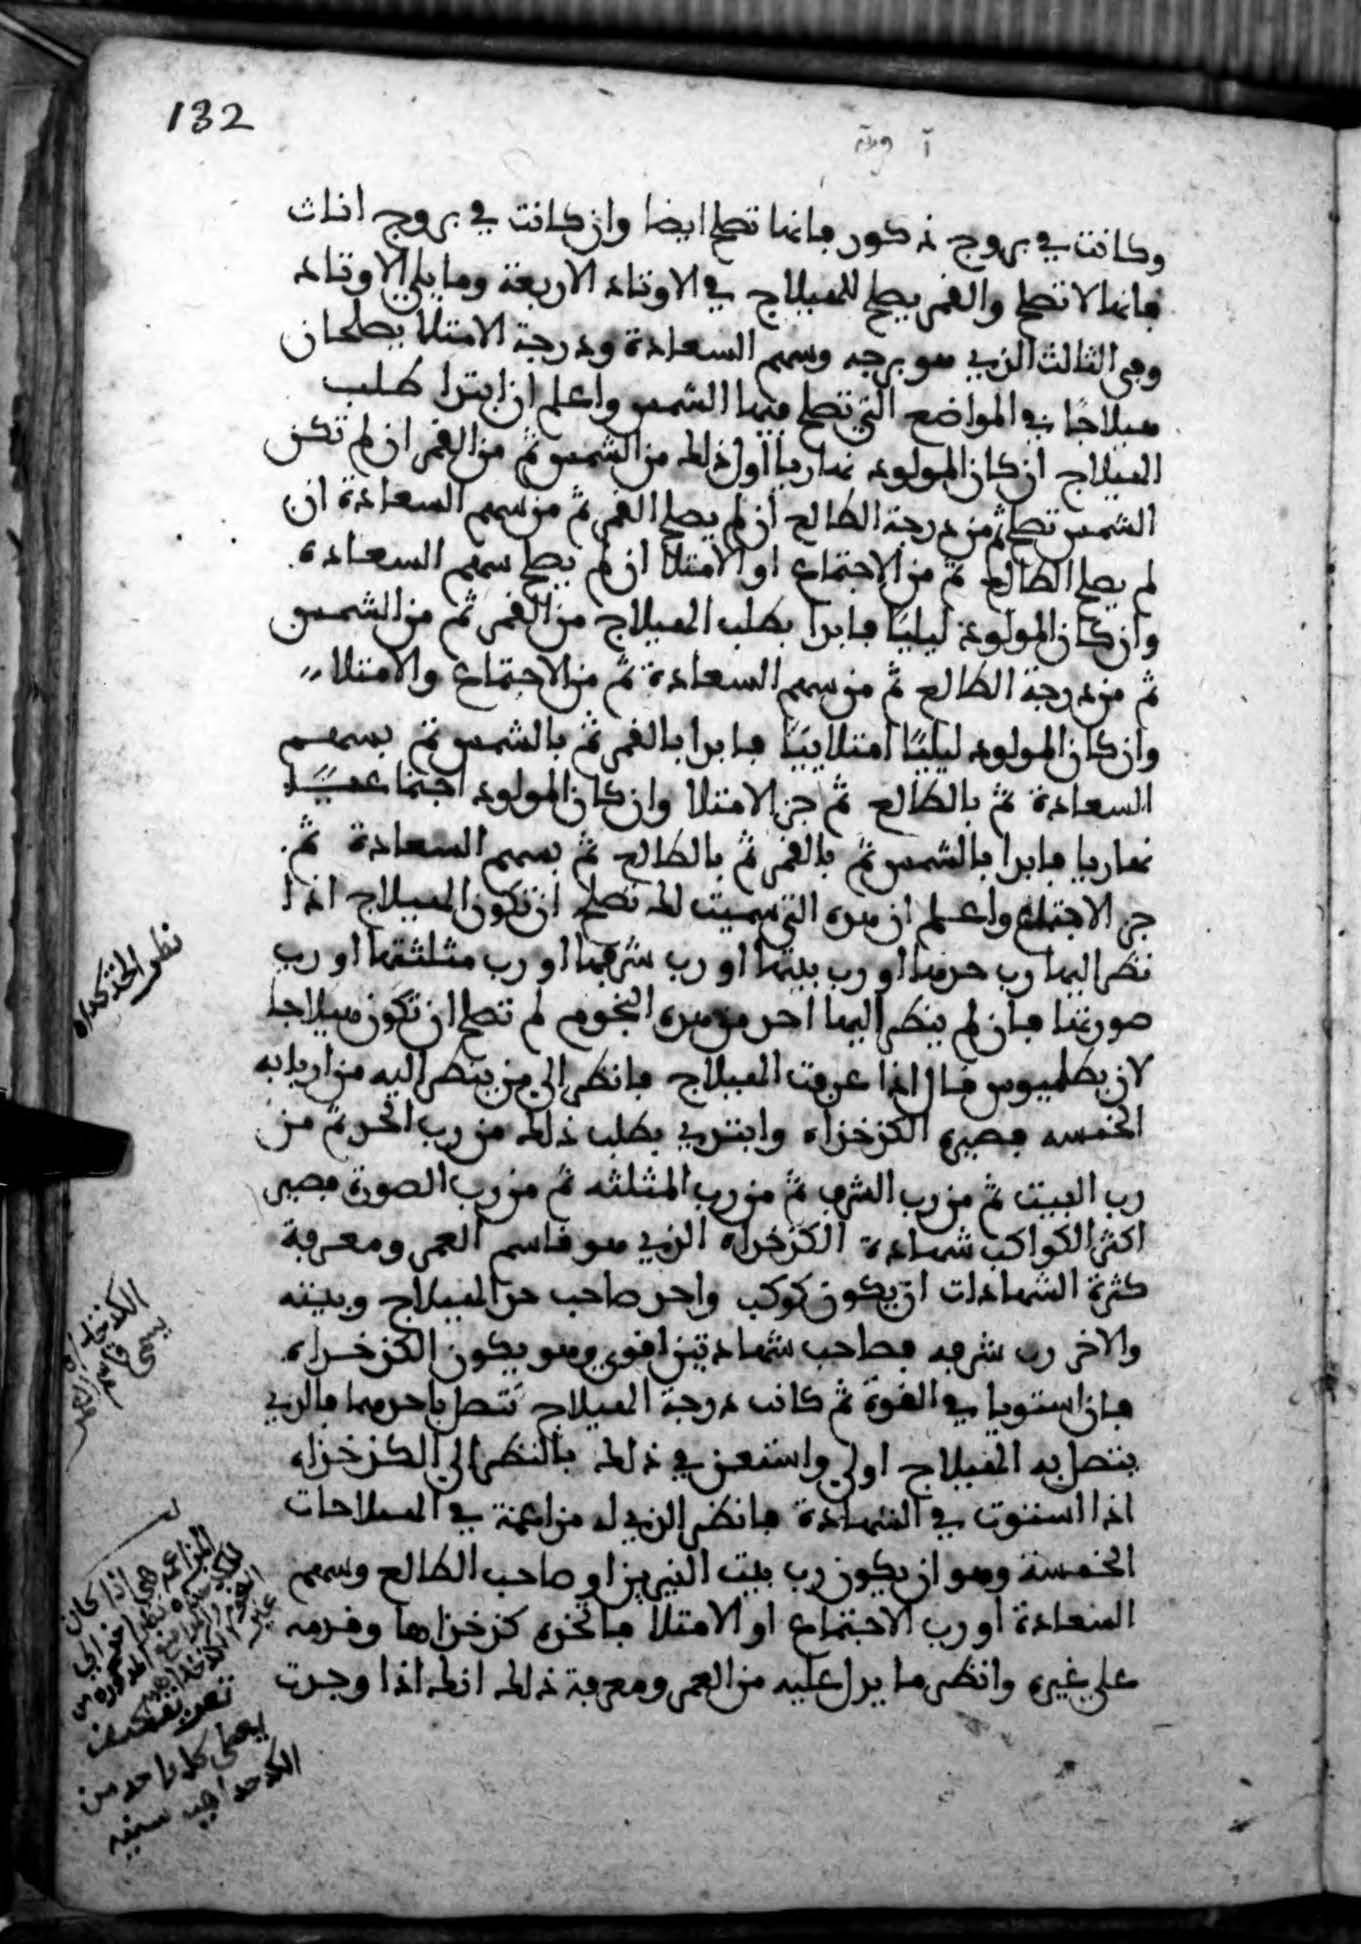 132
وكانت في بروج ذكور فانها تصلح ايضا وان كانت في بروج اناث
فانها لا تصلح والقمر يصلح للهيلاج في الاوتاد الاربعة وما يلي الاوتاد
وفي الثالث الذي هو برجه وسهم السعادة ودرجة الامتلا يصلحان
هيلاجًا في المواضع التي تصلح فيها الشمس واعلم ان ابتدا طلب
الهيلاج ان كان المولود نهاريا اول ذلك من الشمس ثم من القمر ان لم تكن
الشمس تصلح ثم من درجة الطالع ان لم يصلح القمر ثم من سهم السعادة ان
لم يصلح الطالع ثم من الاجتماع او الامتلا ان لم يصلح سهم السعادة.
وان كان المولود ليليًا فابدا بطلب الهيلاج من القمر ثم من الشمس
ثم من درجة الطالع ثم من سهم السعادة ثم من الاجتماع والامتلا
وان كان المولود ليليًا امتلاييًا فابدا بالقمر ثم بالشمس ثم بسهم
السعادة ثم بالطالع ثم جز الامتلا وان كان المولود اجتماعيًا
نهاريا فابدا بالشمس ثم بالقمر ثم بالطالع ثم بسهم السعادة ثم.
جز الاجتماع واعلم ان هذه التي سميت لك تصلح ان تكون الهيلاج اذا
نظر اليها رب حدها او رب بيتها او رب شرفها او رب مثلثتها او رب
صورتها فان لم ينظر اليها احد من هذه النجوم لم تصلح ان تكون هيلاجا
لان بطلميوس قال اذا عرفت الهيلاج فانظر الى من ينظر اليه من اربابه
الخمسه فصيره الكذخذاه وابتدي بطلب ذلك من رب الحد ثم من
رب البيت ثم من رب الشرف ثم من رب المثلثه ثم من رب الصورة فصير
اكثر الكواكب شهادة الكذخذاه الذي هو قاسم العمر ومعرفة
كثرة الشهادات ان يكون كوكب واحد صاحب حد الهيلاج وبيته
والاخر رب شرفه فصاحب شهادتين اقوى وهو يكون الكذخذاه.
فان استويا في القوة ثم كانت درجة الهيلاج تتصل باحدهما فالذي
يتصل به الهيلاج اولى واستعن في ذلك بالنظر الى الكذخذاه
اذا استوت في الشهادة فانظر الذي له مزاعمة في الهيلاجات
الخمسة وهو ان يكون رب بيت النيرين او صاحب الطالع وسهم
السعادة او رب الاجتماع او الامتلا فاتخذه كذخذاها وقدمه
على غيره وانظر ما يدل عليه من العمر ومعرفة ذلك انك اذا وجدت
نظر الكدخداه
الكدخداه
يعطي كل واحد من
الكدخداهيه سنيه